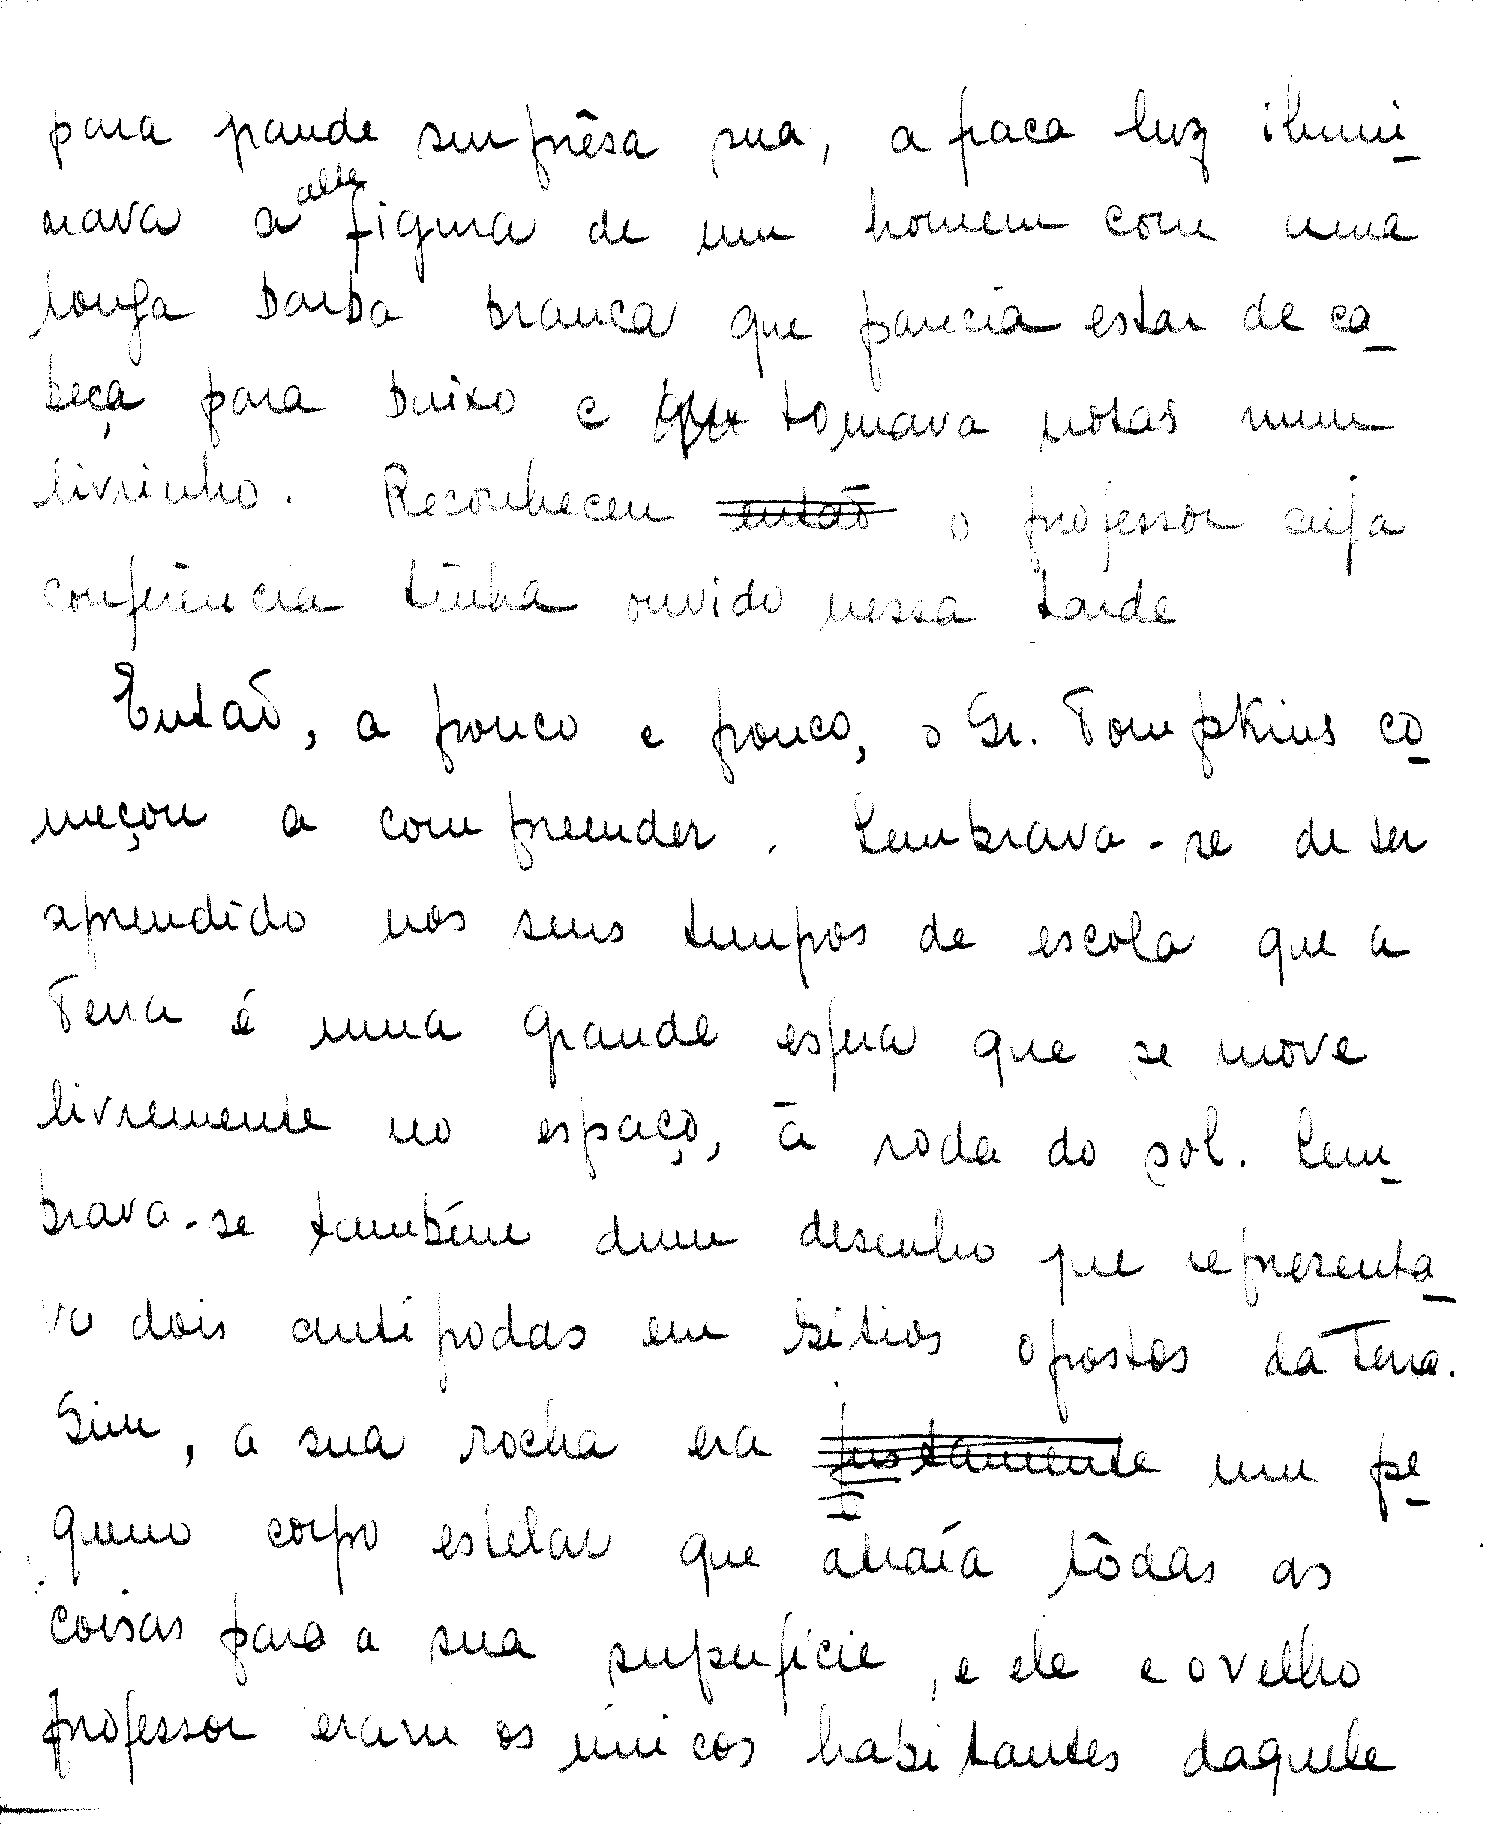 para grande surprêsa sua, a fraca luz ilumi-
nava a alta figura de um homem com uma
longa barba branca que parecia estar de ca-
beça para baixo e tomava notas num
livrinho. Reconheceu então o professor cuja
conferência tinha ouvido nessa tarde
Então, a pouco e pouco, o Sr. Tompkins co-
meçou a compreender. Lembrava-se de ter
aprendido nos seus tempos de escola que a
Terra é uma grande esfera que se move
livremente no espaço, à roda do sol. Lem-
brava-se também dum desenho que representa-
va dois antípodas em sítios opostos da Terra.
Sim, a sua rocha era justamente um pe-
queno corpo estelar que atraía tôdas as
coisas para a sua superfície, e ele e o velho
professor eram os únicos habitantes daquele